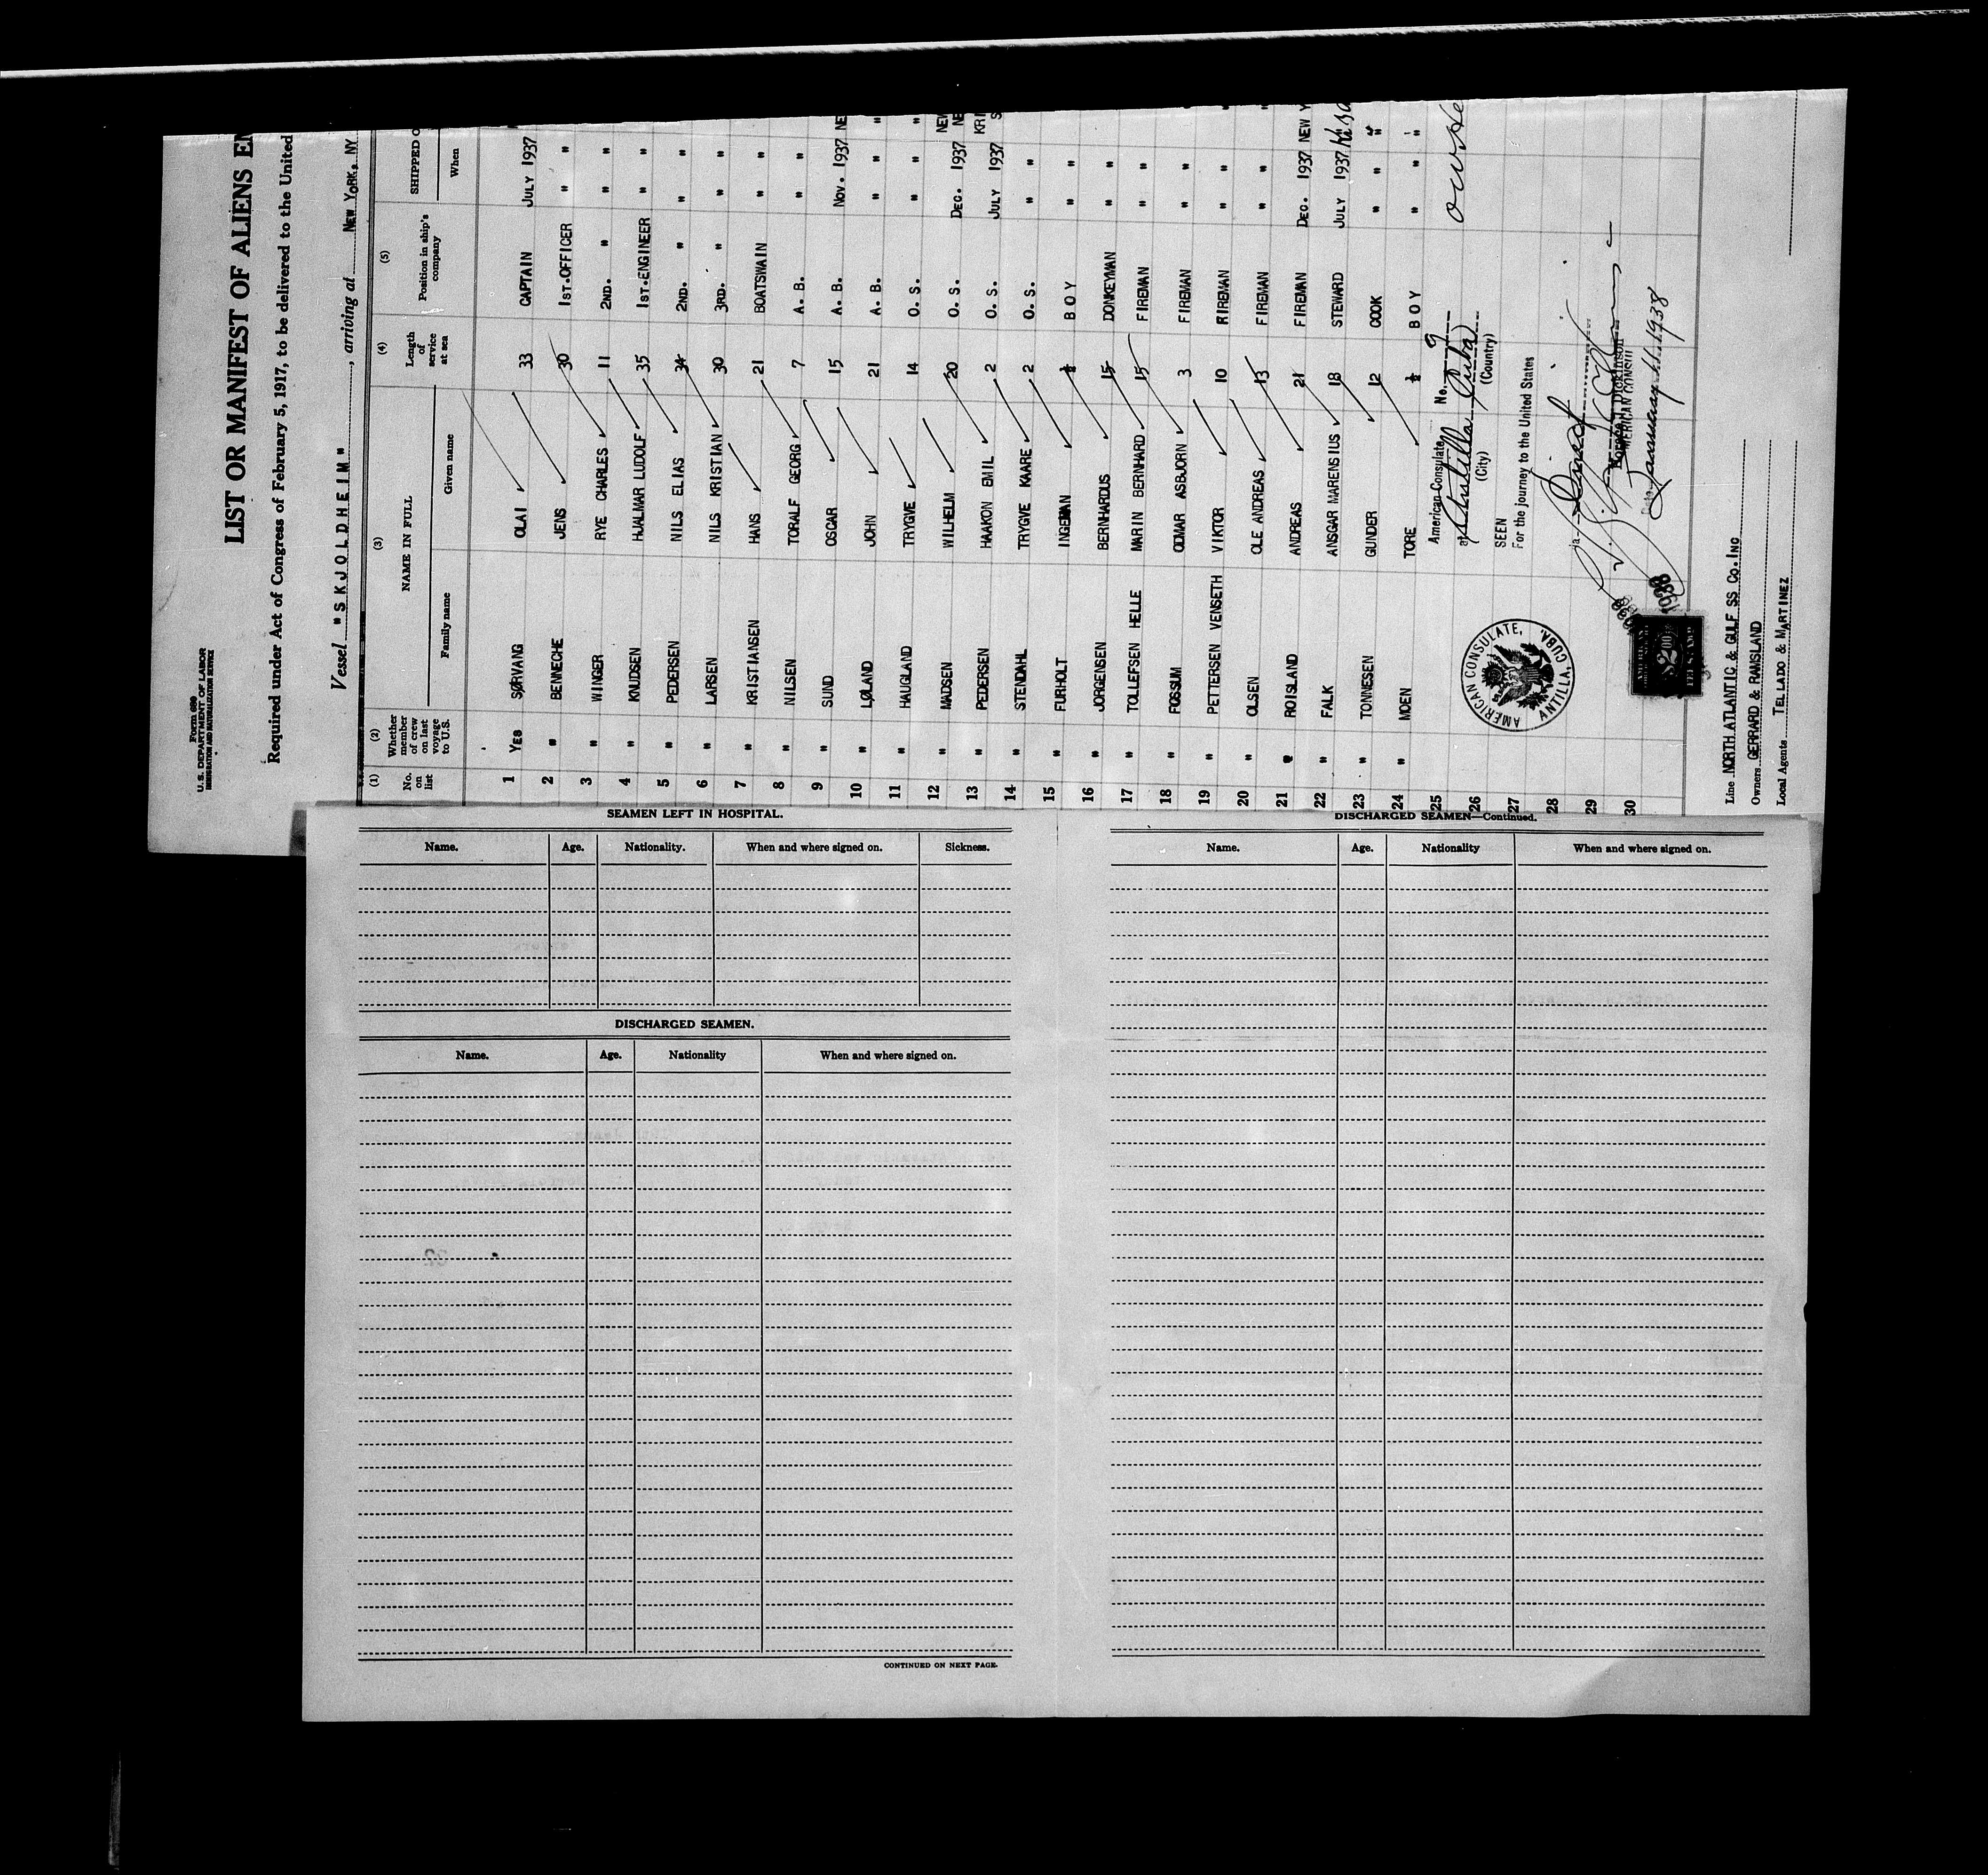 Form 680
U. S. DEPARTMENT OF LABOR
IMMIGRATION AND NATURALIZATION SERVICE
LIST OR MANIFEST OF ALIENS EM
Required under Act of Congress of February 5, 1917, to be delivered to the United
Vessel "SKJOLDHEIM", arriving at NEW YORK, NY
(1) (2) (3) (4) (5)
No. on list Whether member of crew on last voyage to U.S. NAME IN FULL Length of service at sea Position in ship's company SHIPPED O
Family name Given name When
1 YES SØRVANG OLAI 33 CAPTAIN JULY 1937
2 " BENNECHE JENS 30 1ST.OFFICER " "
3 " WINGER RYE CHARLES 11 2ND. " " "
4 " KNUDSEN HJALMAR LUDOLF 35 1ST.ENGINEER " "
5 " PEDERSEN NILS ELIAS 34 2ND. " " "
6 " LARSEN NILS KRISTIAN 30 3RD. " " "
7 " KRISTIANSEN HANS 21 BOATSWAIN " "
8 " NILSEN TORALF GEORG 7 A. B. " "
9 " SUND OSCAR 15 A. B. NOV. 1937 NE
10 " LØLAND JOHN 21 A. B. " " "
11 " HAUGLAND TRYGVE 14 O. S. " " "
12 " MADSEN WILHELM 20 O. S. DEC. 1937 NE
13 " PEDERSEN HAAKON EMIL 2 O. S. JULY 1937 KRI S
14 " STENDAHL TRYGVE KAARE 2 O. S. " "
15 " FURHOLT INGEMAN ½ BOY " "
16 " JORGENSEN BERNHARDUS 15 DONKEYMAN " "
17 " TOLLEFSEN HELLE MARIN BERNHARD 15 FIREMAN " "
18 " FOSSUM ODMAR ASBJORN 3 FIREMAN " "
19 " PETTERSEN VENSETH VIKTOR 10 RIREMAN " "
20 " OLSEN OLE ANDREAS 13 FIREMAN " "
21 " ROISLAND ANDREAS 21 FIREMAN DEC. 1937 NEW Y
22 " FALK ANSGAR MARENSIUS 18 STEWARD JULY 1937
23 " TONNESEN GUNDER 12 COOK " " "
24 " MOEN TORE ½ BOY " " "
25
26
27
28
29
30
American Consulate, No. 9
at Antilla Cuba
(City) (Country)
SEEN
For the journey to the United States
Horace J. Dickinson
AMERICAN CONSUL
Date January 11, 1938
AMERICAN CONSULATE,
ANTILLA, CUBA.
$2.00
FEE STAMP
1938
1938
Line NORTH ATLANTIC & GULF SS CO. INC
Owners GERRARD & RAMSLAND
Local Agents TELLADO & MARTINEZ
SEAMEN LEFT IN HOSPITAL.
Name. Age. Nationality. When and where signed on. Sickness.
DISCHARGED SEAMEN.
Name. Age. Nationality When and where signed on.
CONTINUED ON NEXT PAGE.
DISCHARGED SEAMEN—Continued.
Name. Age. Nationality When and where signed on.